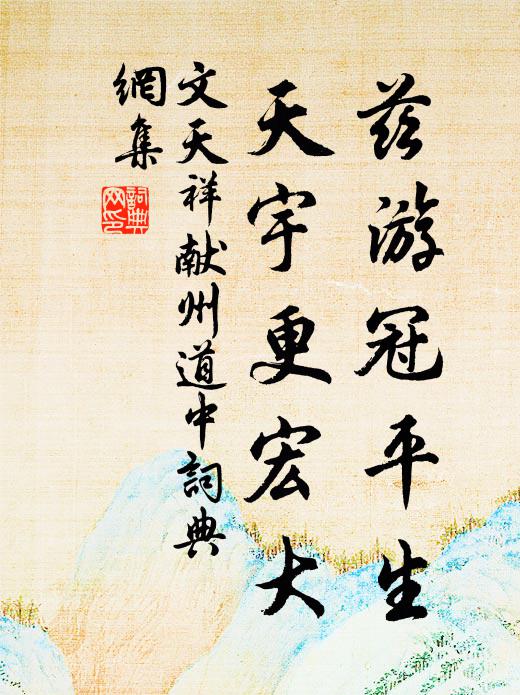 茲游冠平生
天宇更宏大
文天祥献州道中詞典
網集
詞典
网印